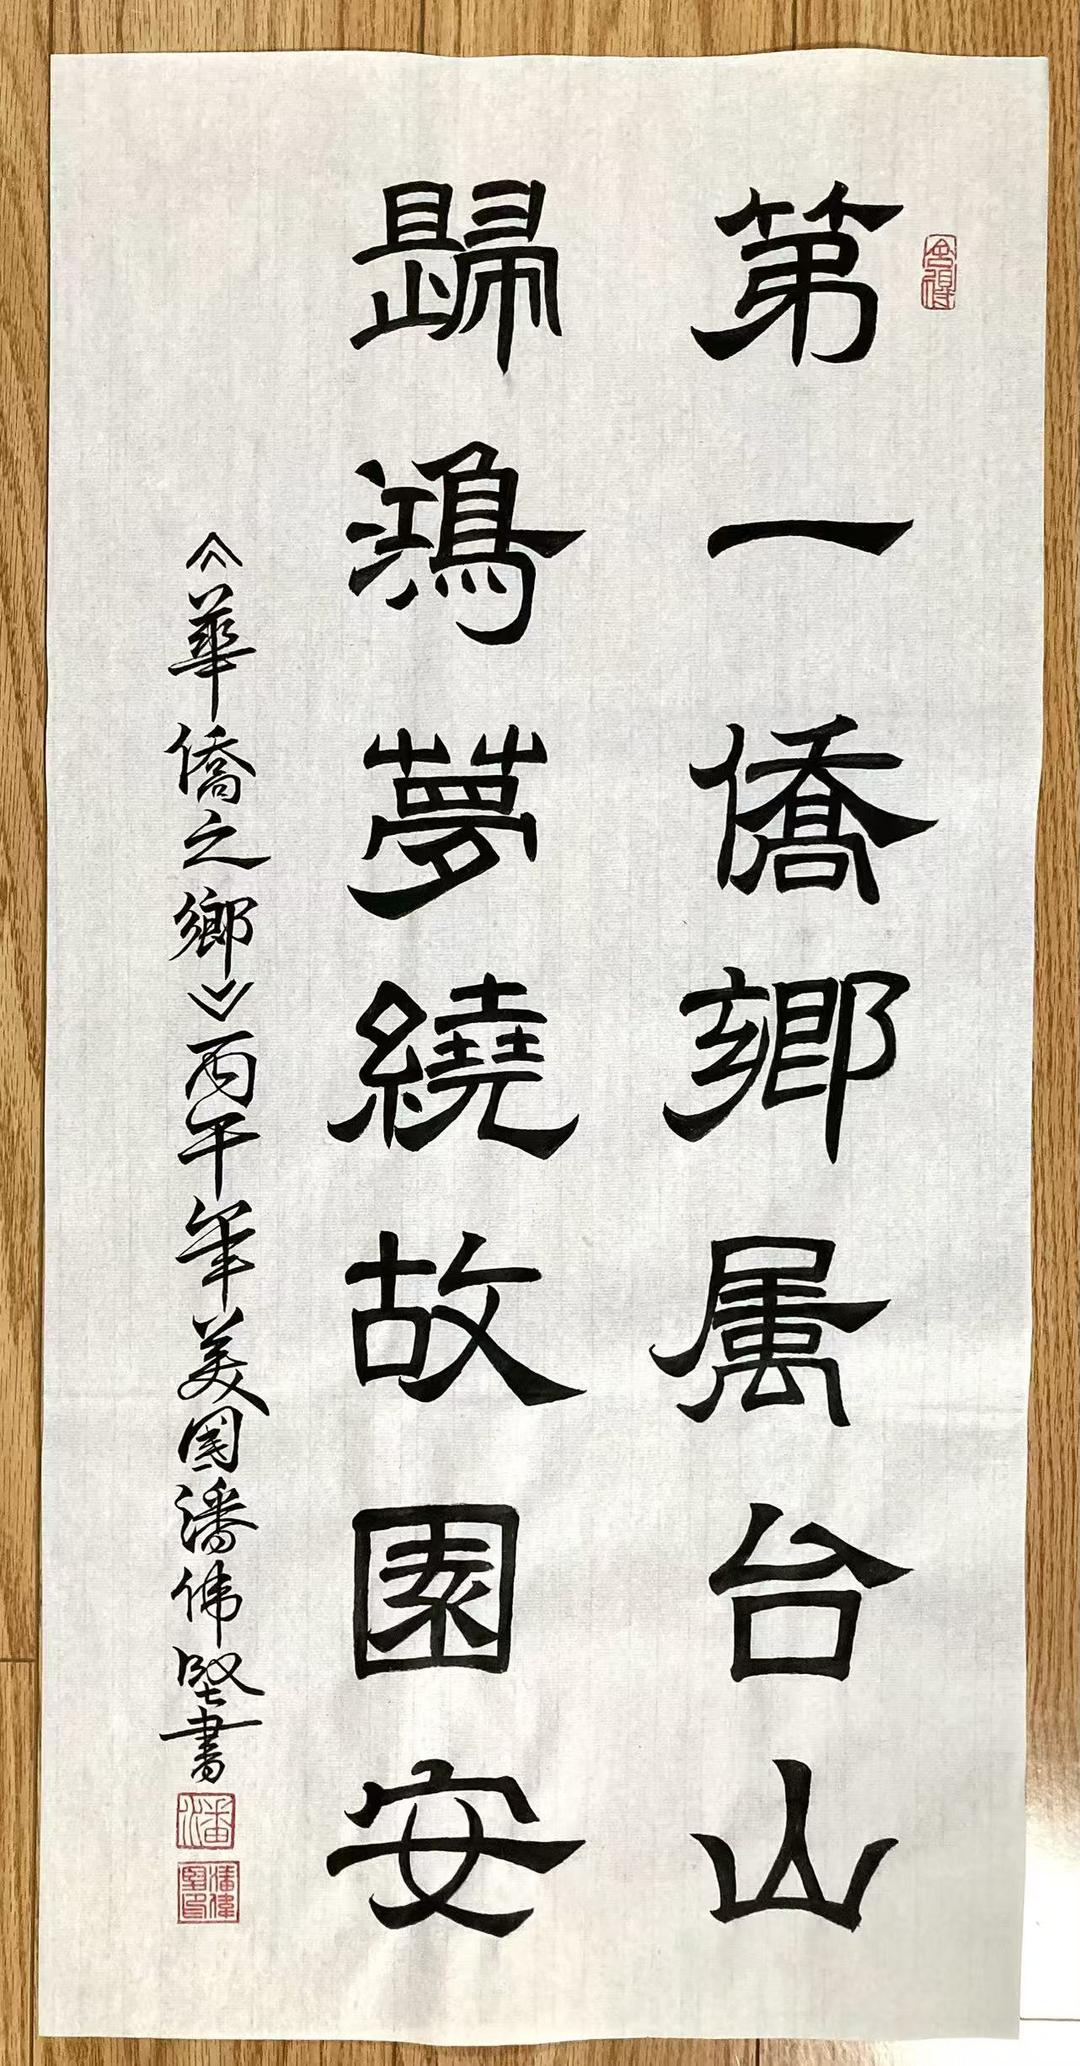 第一僑鄉属台山
歸鴻夢繞故園安
《華僑之鄉》丙午年美国潘伟堅書
舍得
潘
潘偉堅印